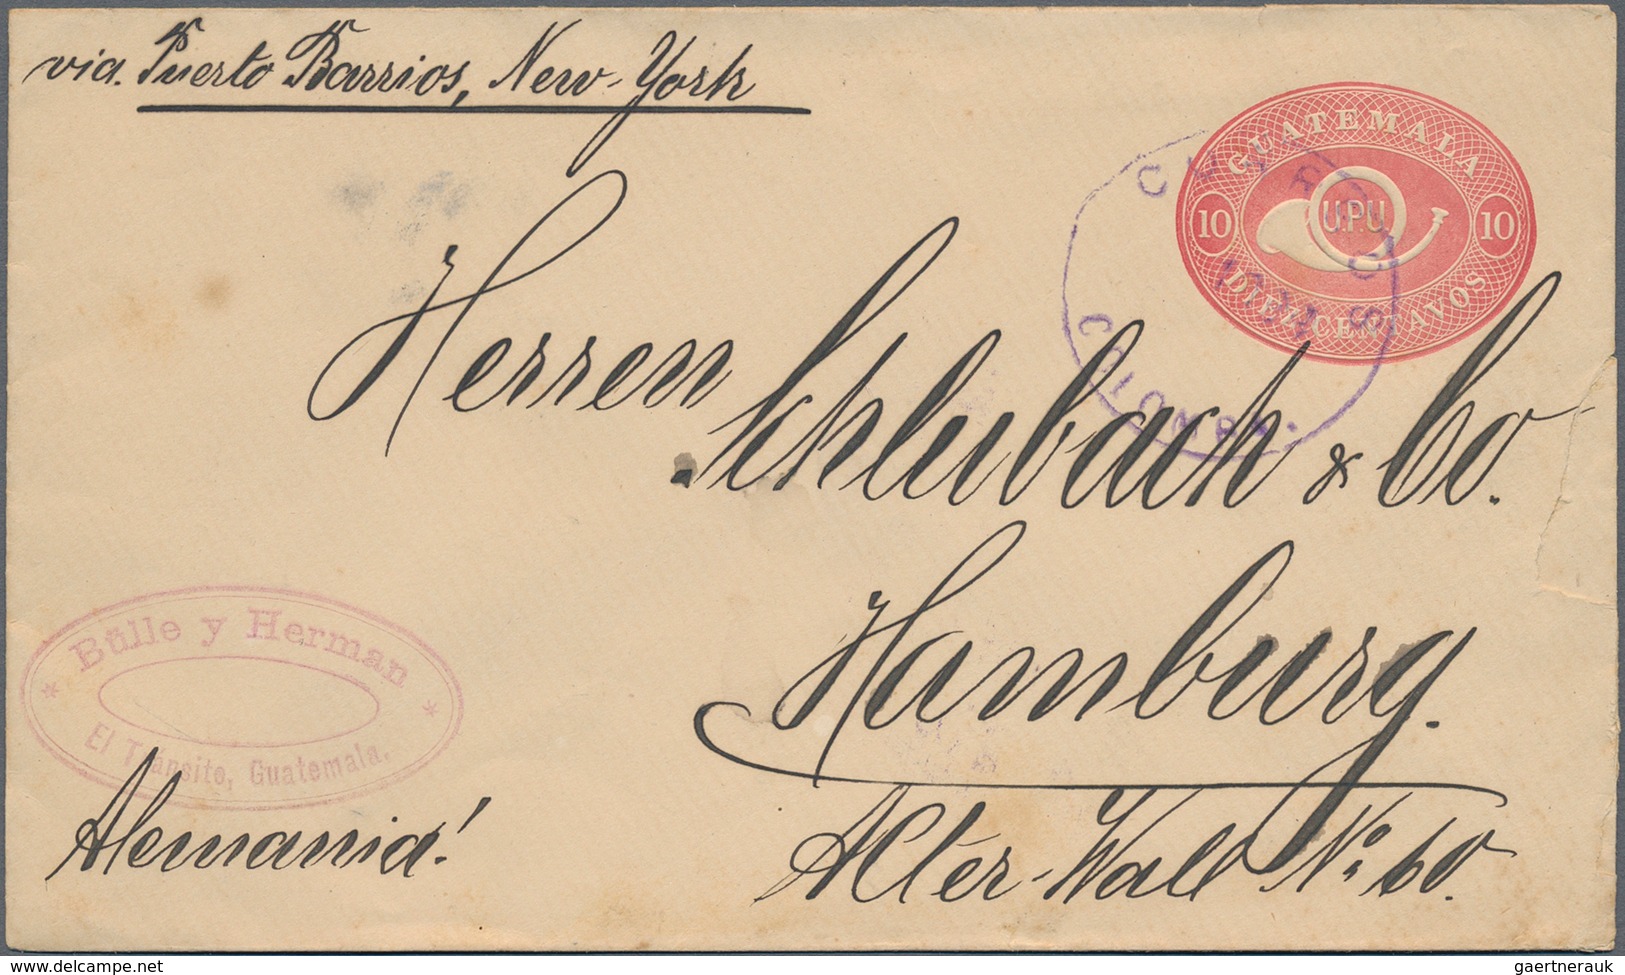 via. Puerto Barrios, New-York
GUATEMALA
10 U.P.U. 10
DIEZ CENTAVOS
COLOMBA.
Herren
Schlubach & Co.
Hamburg.
Alter-Wall No. 60.
Bülle y Herman
El Tránsito, Guatemala.
Alemania!
delcampe.net
gaertnerauk